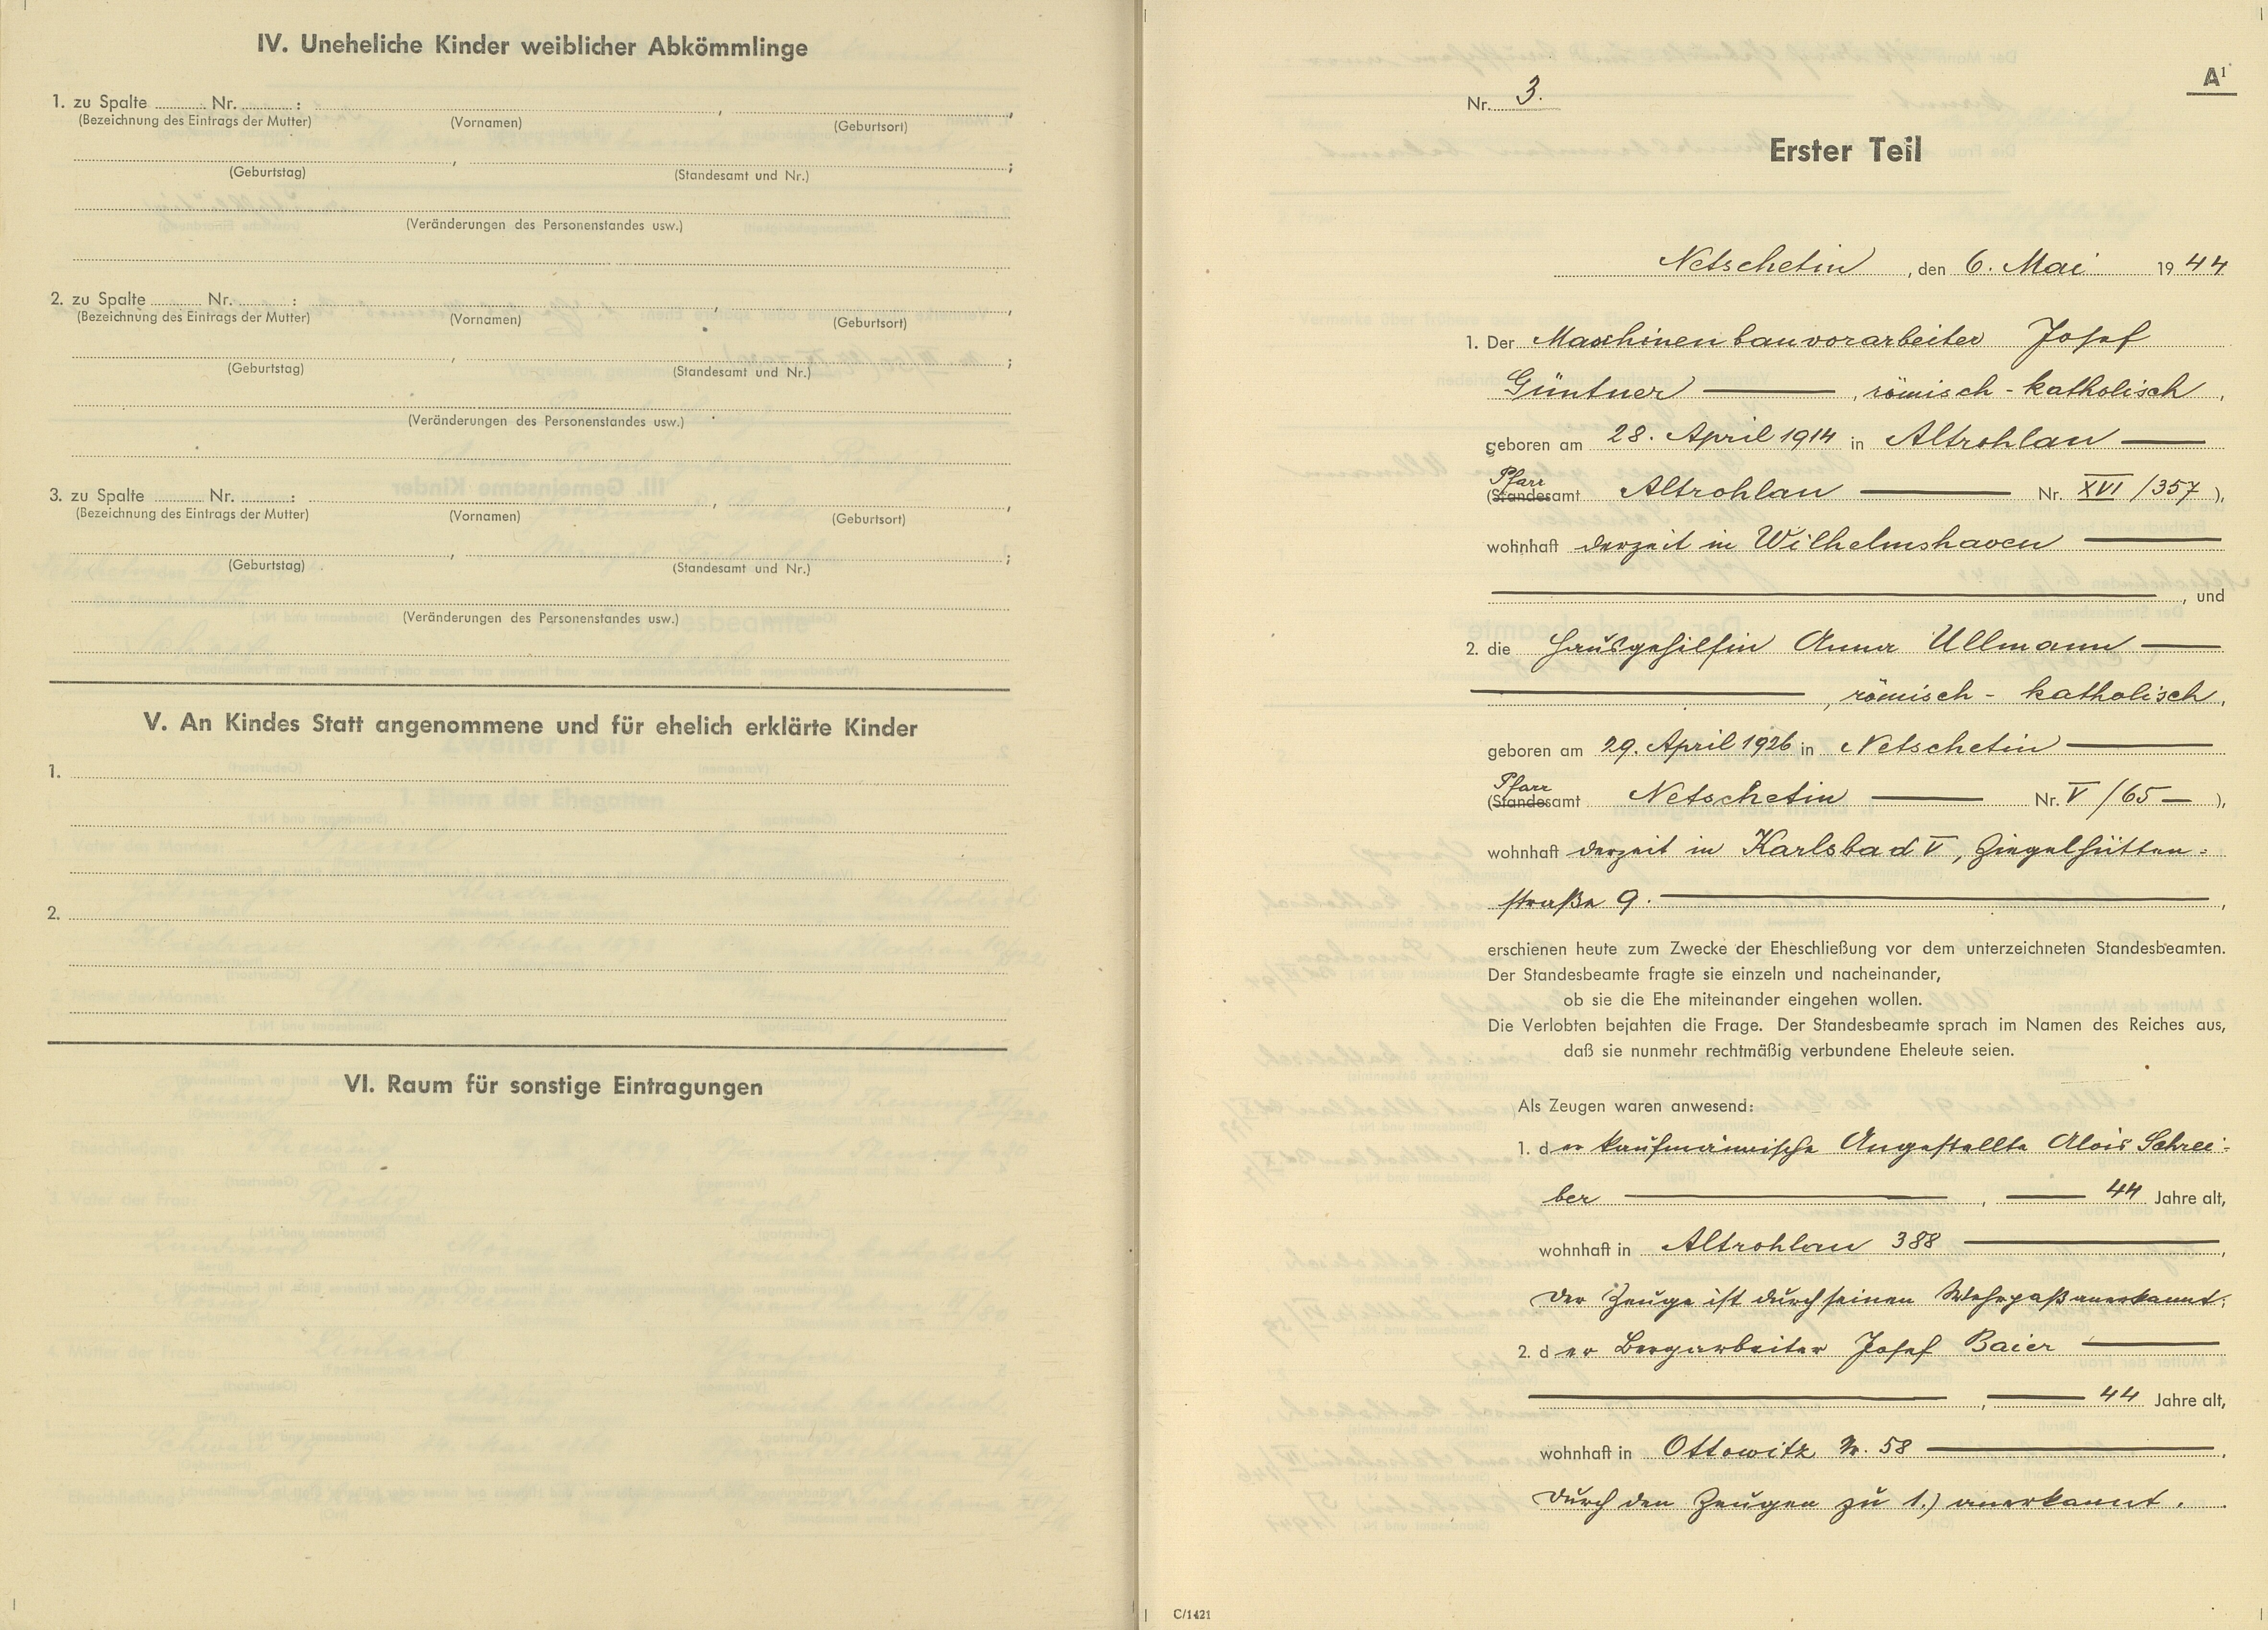 IV. Uneheliche Kinder weiblicher Abkömmlinge
1. zu Spalte Nr. :
(Bezeichnung des Eintrags der Mutter) (Vornamen) (Geburtsort)
(Geburtstag) (Standesamt und Nr.)
(Veränderungen des Personenstandes usw.)
2. zu Spalte Nr. :
(Bezeichnung des Eintrags der Mutter) (Vornamen) (Geburtsort)
(Geburtstag) (Standesamt und Nr.)
(Veränderungen des Personenstandes usw.)
3. zu Spalte Nr. :
(Bezeichnung des Eintrags der Mutter) (Vornamen) (Geburtsort)
(Geburtstag) (Standesamt und Nr.)
(Veränderungen des Personenstandes usw.)
V. An Kindes Statt angenommene und für ehelich erklärte Kinder
1.
2.
VI. Raum für sonstige Eintragungen
A¹
Nr. 3.
Erster Teil
Netschetin, den 6. Mai 1944
1. Der Maschinenbauvorarbeiter Josef
Güntner, römisch-katholisch,
geboren am 28. April 1914 in Altrohlau
Pfarr
(Standesamt Altrohlau Nr. XVI/357),
wohnhaft derzeit in Wilhelmshaven
, und
2. die Hausgehilfin Anna Ullmann
, römisch-katholisch,
geboren am 29. April 1926 in Netschetin
Pfarr
(Standesamt Netschetin Nr. V/65),
wohnhaft derzeit in Karlsbad V, Ziegelhütten-
straße 9.,
erschienen heute zum Zwecke der Eheschließung vor dem unterzeichneten Standesbeamten.
Der Standesbeamte fragte sie einzeln und nacheinander,
ob sie die Ehe miteinander eingehen wollen.
Die Verlobten bejahten die Frage. Der Standesbeamte sprach im Namen des Reiches aus,
daß sie nunmehr rechtmäßig verbundene Eheleute seien.
Als Zeugen waren anwesend:
1. der kaufmännische Angestellte Alois Schrei-
ber, 44 Jahre alt,
wohnhaft in Altrohlau 388,
der Zeuge ist durch seinen Wehrpaß anerkannt;
2. der Bergarbeiter Josef Baier
, 44 Jahre alt,
wohnhaft in Ottowitz Nr. 58,
durch den Zeugen zu 1.) anerkannt.
C/1421